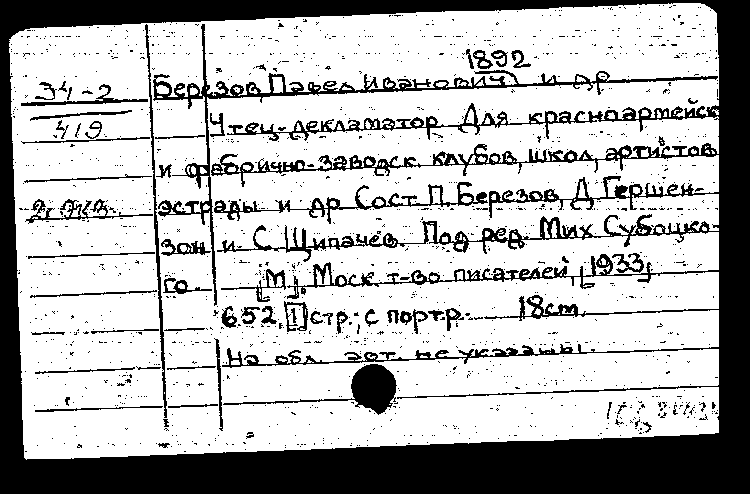 1892
34-2
419
2 экз.
Березов, Павел Иванович и др
Чтец-декламатор Для красноармейск
и фабрично-заводск. клубов, школ, артистов
эстрады и др Сост П. Березов, Д. Гершен-
зон и С. Щипачев. Под ред. Мих Субоцко-
го. [М], Моск. т-во писателей, [1933]
652, [1] стр.; с портр. 18 cm.
На обл. авт. не указаны.